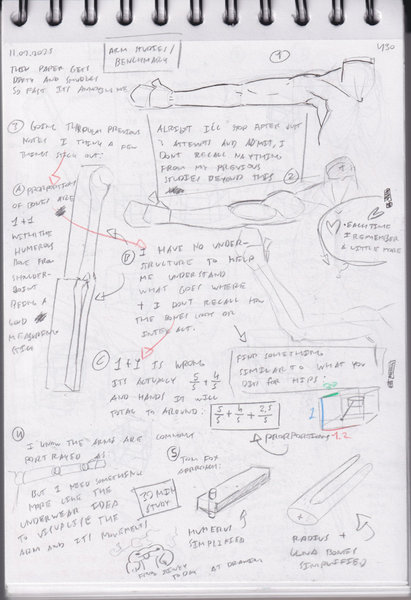 11.07.2025
ARM STUDIES/
BENCHMARK
THIS PAPER GETS
DIRTY AND SMUDGES
SO FAST ITS ANNOYING ME
1
430
3 GOING THROUGH PREVIOUS
NOTES I THINK A FEW
THINGS STICK OUT:
ALRIGHT I'LL STOP AFTER JUST
ATTEMPTS AND ADMIT, I
DONT RECALL ANYTHING
FROM MY PREVIOUS
STUDIES BEYOND THIS
2
A PROPORTIONS
OF BONES ARE
1+1
WITH THE
HUMEROUS
BONE FROM
SHOULDER-
JOINT
BEING A
GOOD
MEASURING
STICK
EACH TIME
I REMEMBER
A LITTLE MORE
B I HAVE NO UNDER-
STRUCTURE TO HELP
ME UNDERSTAND
WHAT GOES WHERE
+ I DONT RECALL HOW
THE BONES LOOK OR
INTERACT.
C 1+1 IS WRONG
ITS ACTUALLY 5/5 + 4/5
AND HANDS IT WILL
TOTAL TO AROUND:
5/5 + 4/5 + 2,5/5
FIND SOMETHING
SIMILAR TO WHAT YOU
DID FOR HIPS:
PROPORTIONS 1.2
4 I KNOW THE ARMS ARE COMMONLY
PORTRAYED AS:
BUT I NEED SOMETHING
MORE LIKE THE
UNDERWEAR IDEA
TO VISUALISE THE
ARM AND ITS MOVEMENTS
30 MIN
STUDY
5 TOM FOX
APPROACH:
HUMERUS
SIMPLIFIED
RADIUS +
ULNA BONES
SIMPLIFIED
TODAY AT DRAWING